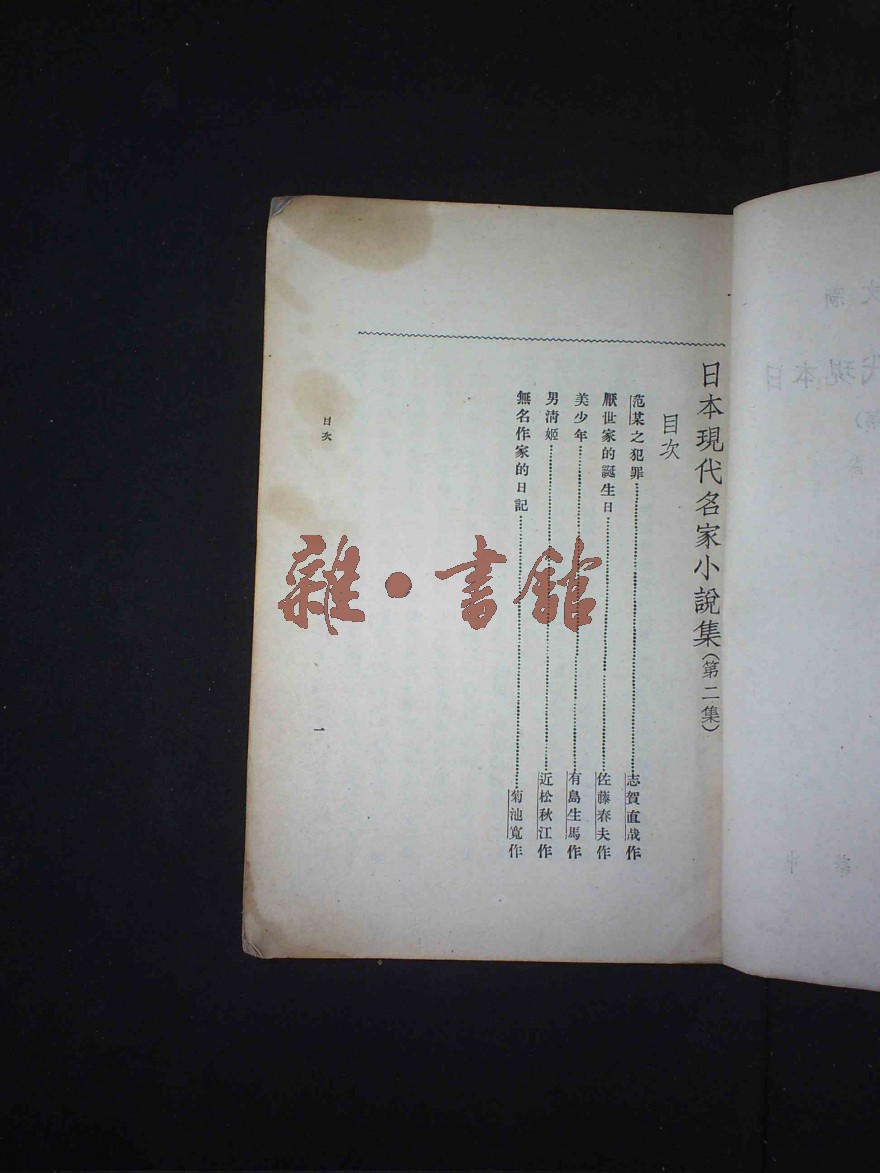 日本現代名家小說集(第二集)
目次
范某之犯罪……志賀直哉作
厭世家的誕生日……佐藤春夫作
美少年……有島生馬作
男淸姬……近松秋江作
無名作家的日記……菊池寬作
目次
一
雜·書館